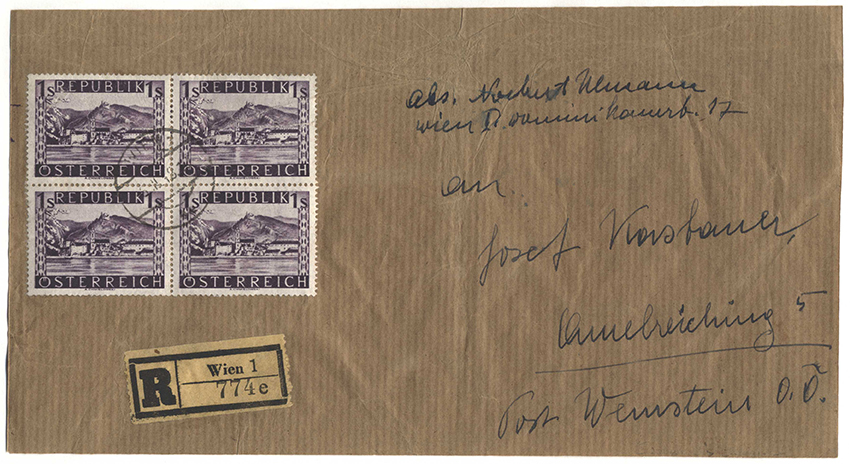 1s REPUBLIK 1s
ÖSTERREICH
1s REPUBLIK 1s
ÖSTERREICH
1s REPUBLIK 1s
ÖSTERREICH
1s REPUBLIK 1s
ÖSTERREICH
R
Wien 1
774e
abs. Norbert Ulmann
wien I Dominikanerb. 17
an
Josef
5
Post Wernstein O.Ö.